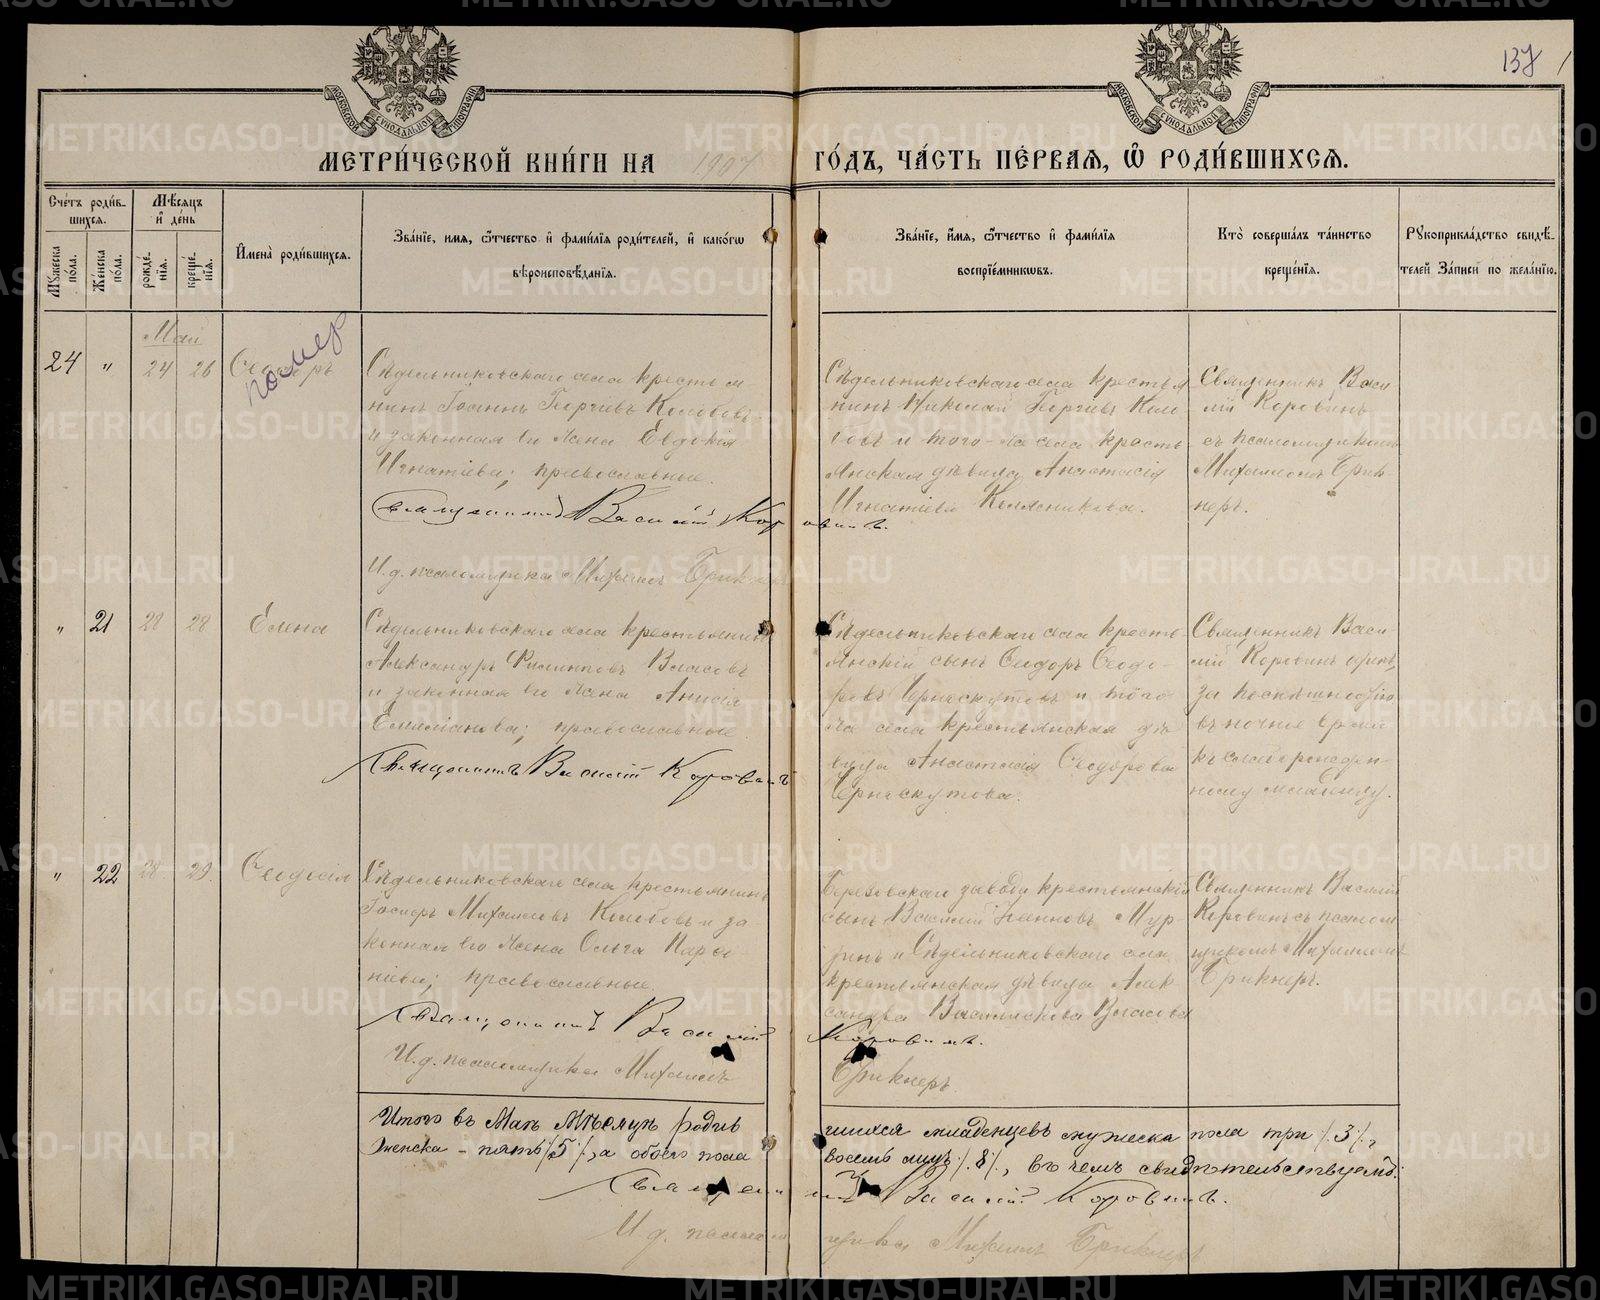 137
МОСКОВСКОЙ СУНОДАЛЬНОЙ ТИПОГРАФІИ
МОСКОВСКОЙ СУНОДАЛЬНОЙ ТИПОГРАФІИ
МЕТРИ́ЧЕСКОЙ КНИ́ГИ НА 1907 ГО́ДЪ, ЧА́СТЬ ПЕ́РВАѦ, Ѡ РОДИ́ВШИХСѦ.
Сче́тъ роди́в-
шихсѧ.
Му́жеска по́ла.
Же́нска по́ла.
Мѣ́сѧцъ
и҆ де́нь
рожде́-
нїѧ.
креще́-
нїѧ.
И҆мена̀ роди́вшихсѧ.
Зва́нїе, имѧ, ѻ҆́тчество и҆ фами́лїѧ роди́телей, и҆ како́гѡ
вѣроисповѣ́данїѧ.
Зва́нїе, и҆́мѧ, ѻ҆́тчество и҆ фами́лїѧ
воспрїе́мникωвъ.
Кто̀ соверша́лъ та́инство
креще́нїѧ.
Рꙋкоприкла́дство свидѣ́-
телей за́писи по жела́нїю.
Май
24 " 24 26 Ѳеодоръ
помер
Сѣдельниковскаго села крестья
нинъ Іоаннъ Георгіевъ Колобовъ
и законная его жена Евдокія
Игнатіева; православные.
Священникъ Василій Коровинъ.
И. д. псаломщика Михаилъ Брикнеръ
Сѣдельниковскаго села крестья
нинъ Николай Георгіевъ Коло-
бовъ и того-же села кресть-
янская дѣвица Анастасія
Игнатіева
Священникъ Васи
лій Коровинъ
съ псаломщикомъ
Михаиломъ Брик-
неръ.
" 21 28 28 Елена
Сѣдельниковскаго села крестьянинъ
Александръ Филипповъ Власовъ
и законная его жена Анисія
Емиліанова; православные
Священникъ Василій Коровинъ
Сѣдельниковскаго села кресть-
янскій сынъ Ѳеодоръ Ѳеодо-
ровъ Черноскутовъ и того
же села крестьянская дѣ
вица Анастасія Ѳеодорова
Черноскутова.
Священникъ Васи-
лій Коровинъ одинъ,
за поспѣшностію
въ ночное время
къ слаборожден-
ному младенцу.
" 22 28 29. Ѳеодосія
Сѣдельниковскаго села крестьянинъ
Михаиловъ Колобовъ и за
конная его жена Ольга Парѳе-
ніева; православные.
Священникъ Василій Коровинъ.
И. д. псаломщика Михаилъ Брикнеръ.
Березовскаго завода крестьянскій
сынъ Василій Іоанновъ Мур-
зинъ и Сѣдельниковскаго села
крестьянская дѣвица Алек-
сандра Васильевна Власова
Священникъ Василій
Коровинъ съ псалом-
щикомъ Михаиломъ
Брикнеръ.
Итого въ Маѣ мѣсяцѣ родив шихся младенцевъ мужеска пола три /.3/.,
женска - пять /.5./, а обоего пола восемь лицъ /.8/., въ чемъ свидѣтельствуемъ:
Священникъ Василій Коровинъ.
И. д. псаломщика Михаилъ Брикнеръ
METRIKI.GASO-URAL.RU